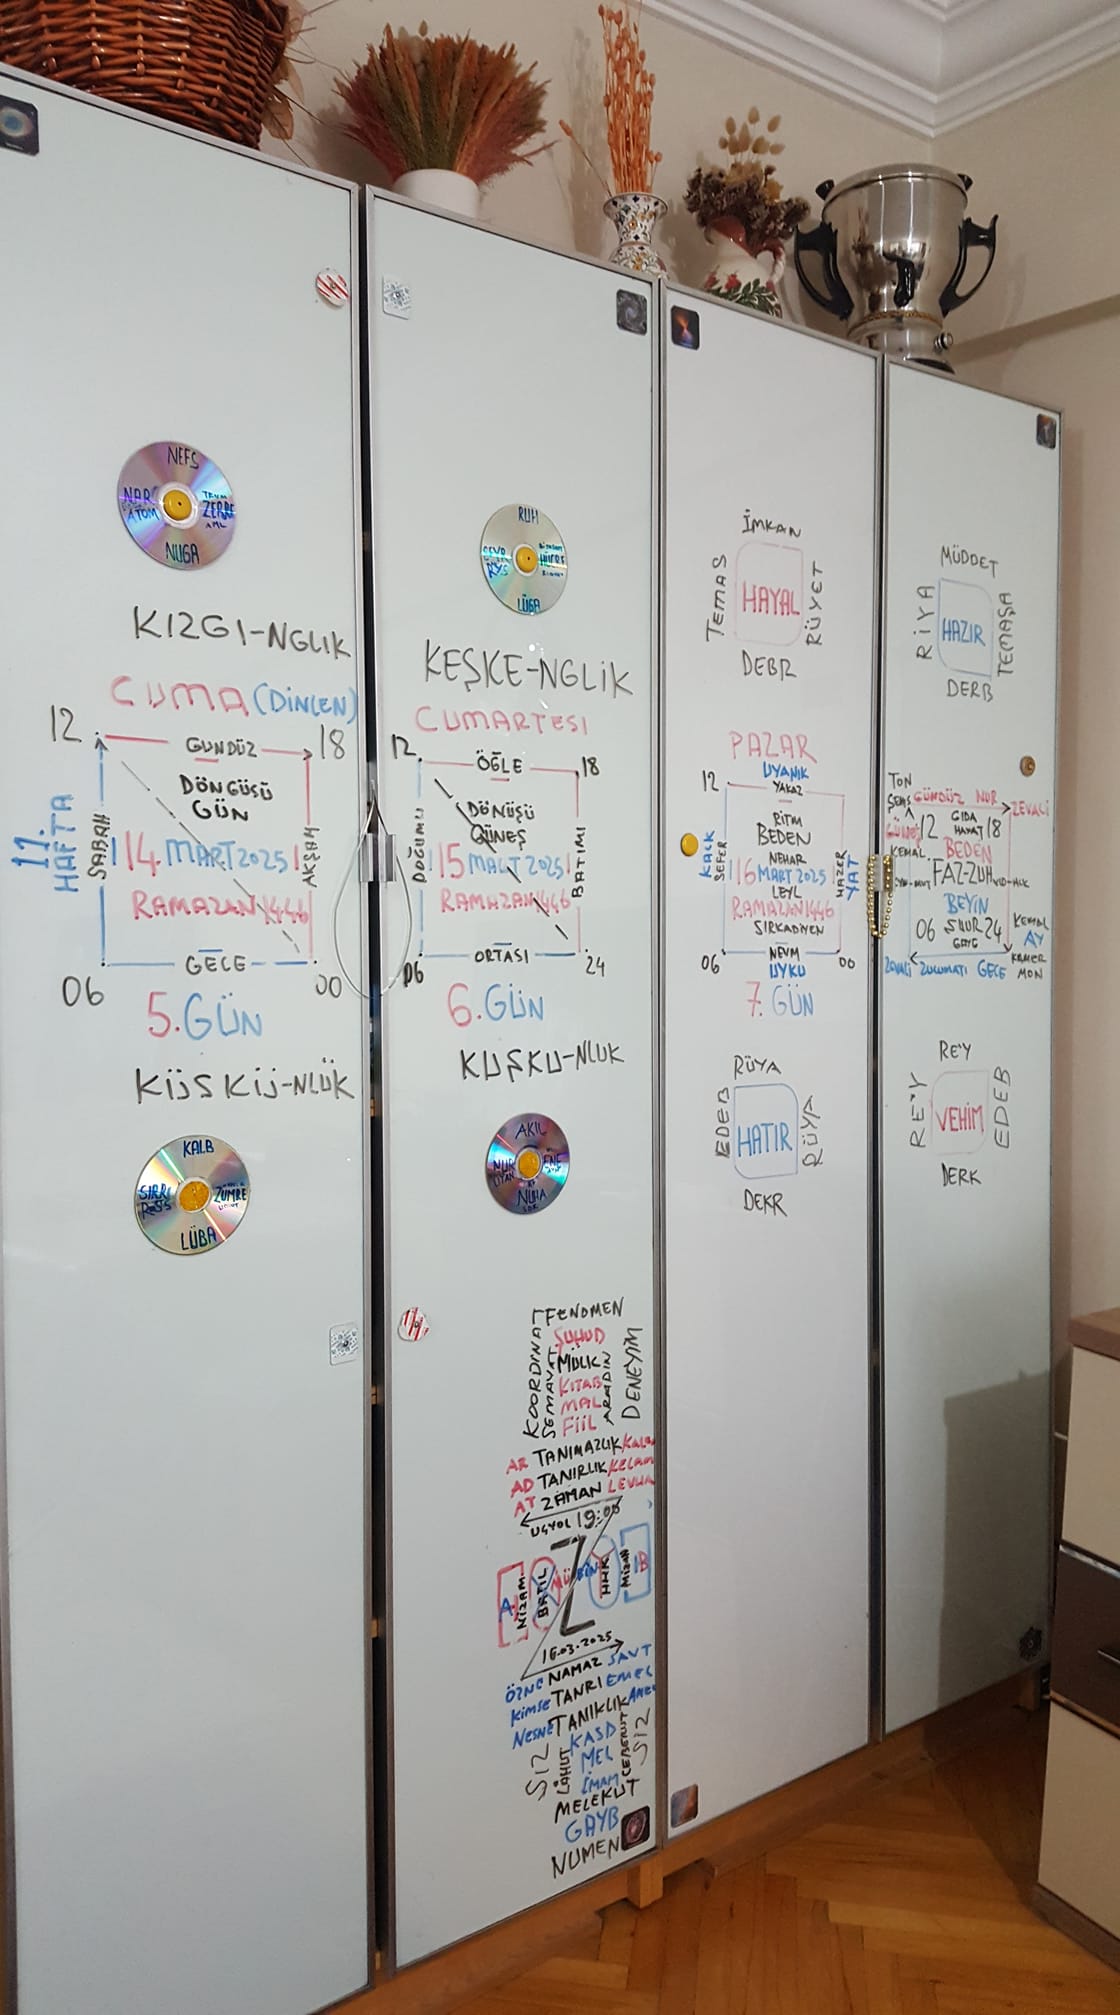 NEFS
NAR
ATOM
ZERRE
NUGA
KIZGI-NGLIK
CUMA (DİNLEN)
12
GÜNDÜZ
18
DÖNGÜSÜ
GÜN
11.
HAFTA
SABAH
14. MART 2025
AKŞAM
RAMAZAN 1446
06
GECE
00
5.GÜN
KÜSKÜ-NLÜK
KALB
SIRR
ZÜMRE
LÜBA
RUH
LÜGA
KEŞKE-NGLİK
CUMARTESI
12
ÖĞLE
18
DÖNÜŞÜ
GÜNEŞ
DOĞUMU
15 MART 2025
BATIMI
RAMAZAN 1446
06
ORTASI
24
6.GÜN
KUŞKU-NLUK
AKIL
NUR
NUHA
FENOMEN
KOORDİNAT
ŞUHUD
SEMAVAT
MÜLK
KITAB
MAL
FİİL
DENEYİM
AR TANIMAZLIK
AD TANIRLIK KELAM
AT ZAMAN LEVHA
19:00
A
NİZAM
BATIL
Z
MİZAN
B
16.03.2025
ÖZNE NAMAZ SAVT
KİMSE TANRI EMEL
NESNE TANIKLIK
SIZ
LÂHUT
KASD
MEL
İMAM
CEBERUT
SİZ
MELEKUT
GAYB
NUMEN
İMKAN
TEMAS
HAYAL
RÜYET
DEBR
PAZAR
UYANIK
12
YAKAZ
RİTM
BEDEN
KALK
SEFER
NEHAR
16 MART 2025
LEYL
HAZER
YAT
RAMAZAN 1446
SIRKADİYEN
06
NEVM
00
UYKU
7. GÜN
RÜYA
EDEB
HATIR
RÜYA
DEKR
MÜDDET
RİYA
HAZIR
TEMAŞA
DERB
TON
ŞEMS
GÜNDÜZ NUR
ZEVALİ
GÜNEŞ
12
GIDA
HAYAT
18
KEMAL
BEDEN
FAZ-ZUH
BEYİN
06
24
KEMAL
AY
KAMER
MON
ZEVALİ ZULUMATI GECE
REY
REY
VEHİM
EDEB
DERK